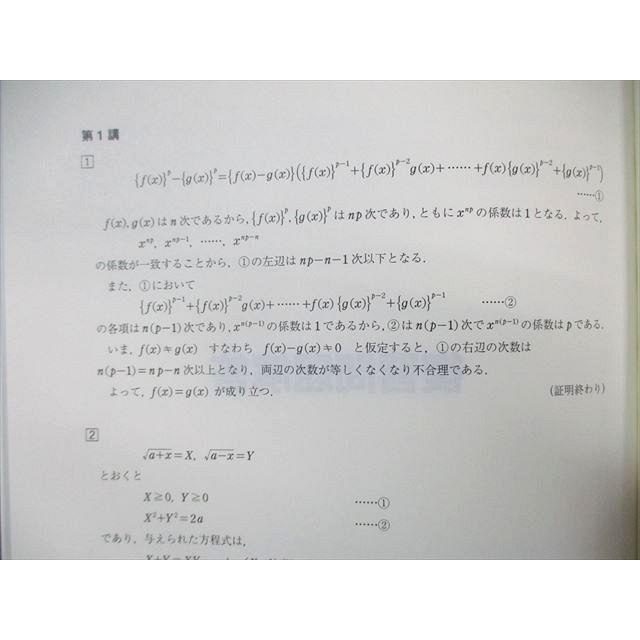 第1講
1
{f(x)}^p−{g(x)}^p={f(x)−g(x)}({f(x)}^{p−1}+{f(x)}^{p−2}g(x)+……+f(x){g(x)}^{p−2}+{g(x)}^{p−1})
……①
f(x), g(x)はn次であるから, {f(x)}^p, {g(x)}^p はnp次であり, ともにx^{np}の係数は1となる. よって,
x^{np}, x^{np−1}, ……, x^{np−n}
の係数が一致することから, ①の左辺はnp−n−1次以下となる.
また, ①において
{f(x)}^{p−1}+{f(x)}^{p−2}g(x)+……+f(x){g(x)}^{p−2}+{g(x)}^{p−1} ……②
の各項はn(p−1)次であり, x^{n(p−1)}の係数は1であるから, ②はn(p−1)次でx^{n(p−1)}の係数はpである.
いま, f(x)≠g(x) すなわち f(x)−g(x)≠0 と仮定すると, ①の右辺の次数は
n(p−1)=np−n次以上となり, 両辺の次数が等しくなくなり不合理である.
よって, f(x)=g(x)が成り立つ. (証明終わり)
2
√(a+x)=X, √(a−x)=Y
とおくと
X≧0, Y≧0 ……①
X²+Y²=2a ……②
であり, 与えられた方程式は,